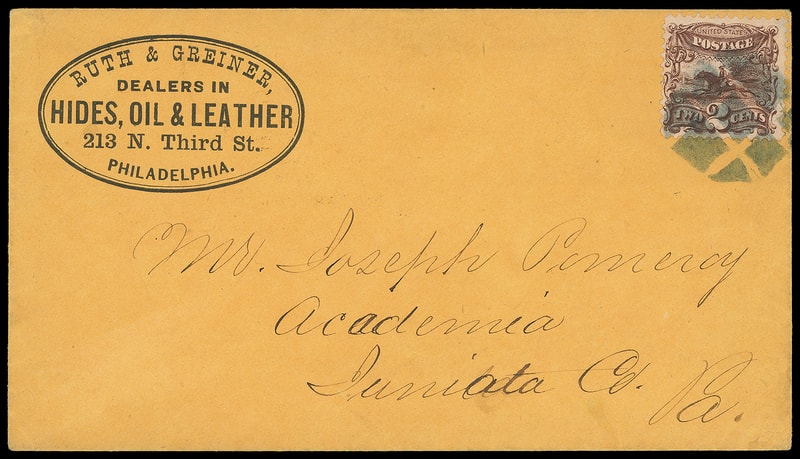 RUTH & GREINER,
DEALERS IN
HIDES, OIL & LEATHER
213 N. Third St.
PHILADELPHIA.
UNITED STATES
POSTAGE
TWO 2 CENTS
Mr. Joseph Pomeroy
Academia
Juniata Co.
Pa.